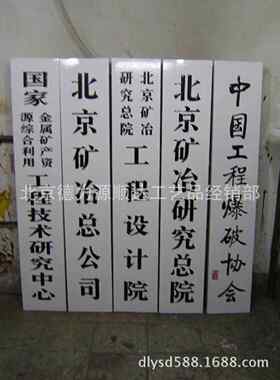 国家
金属矿产资
源综合利用
工程技术研究中心
北京矿冶总公司
北京矿冶
研究总院
工程设计院
北京矿冶研究总院
中国工程爆破协会
北京德 源顺达工艺品经销部
dlysd588.1688.com